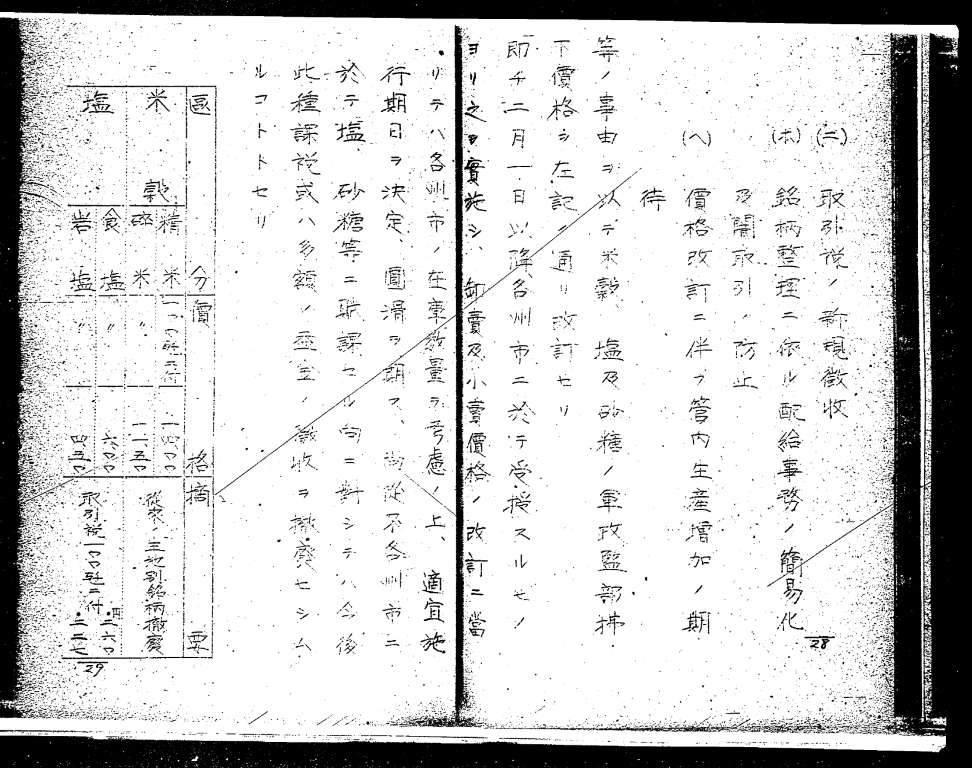 (ニ) 取引税ノ新規徴収
(ホ) 銘柄整理ニ依ル配給事務ノ簡易化
及闇取引ノ防止
(ヘ) 價格改訂ニ伴フ管内生産増加ノ期
待
等ノ事由ヲ以テ米穀、塩及砂糖ノ軍政監部拂
下價格ヲ左記ノ通リ改訂セリ
即チ二月一日以降各州市ニ於テ受授スルモノ
ヨリ之ヲ實施シ、卸賣及小賣價格ノ改訂ニ當
リテハ各州市ノ在庫数量ヲ考慮ノ上、適宜施
行期日ヲ決定、圓滑ヲ期ス、尚従来各州市ニ
於テ塩、砂糖等ニ賦課セル向ニ對シテハ今後
此種課税或ハ多額ノ
徴収ヲ撤廃セシム
ルコトトセリ
28
區分 價格 摘要
米穀 精米 一〇〇瓩ニ付 一四〇〇 従来ノ三地別銘柄撤廃
碎米 〃 一一五〇
塩 食塩 〃 六〇〇 取引税一〇〇瓩ニ付 二六〇
岩塩 〃 四五〇 二二七
29